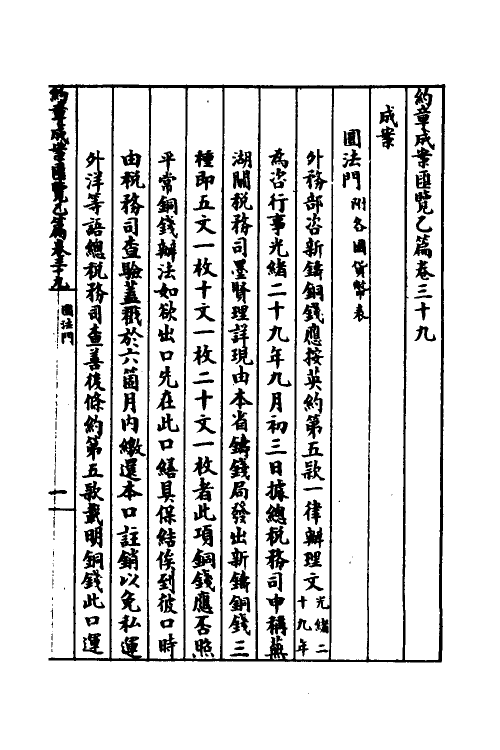 約章成案匯覽乙篇卷三十九
成案
圜法門附各國貨幣表
外務部咨新鑄銅錢應按英約第五款一律辦理文光緒二十九年
為咨行事光緒二十九年九月初三日據總稅務司申稱蕪
湖關稅務司墨賢理詳現由本省鑄錢局發出新鑄銅錢三
種即五文一枚十文一枚二十文一枚者此項銅錢應否照
平常銅錢辦法如欲出口先在此口繕具保結俟到彼口時
由稅務司查驗蓋戳於六箇月內繳還本口註銷以免私運
外洋等語總稅務司查善後條約第五款載明銅錢此口運
約章成案匯覽乙篇卷三十九
圜法門
一